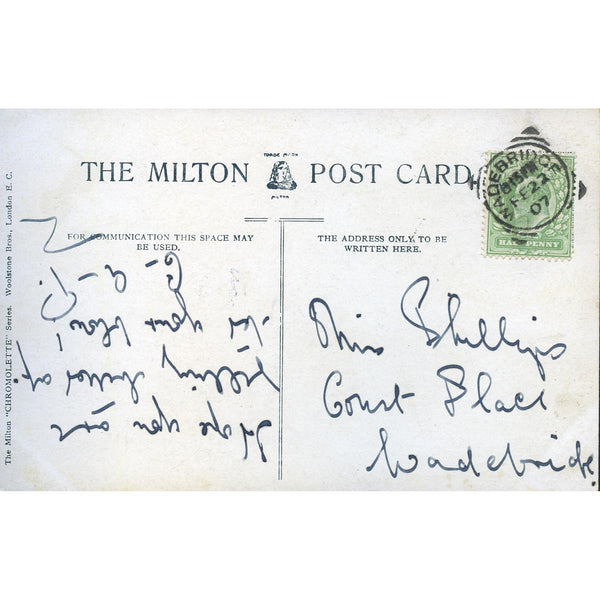 THE MILTON POST CARD
TRADE MARK
MILTON
WADEBRIDGE
FE 22
07
HALF PENNY
FOR COMMUNICATION THIS SPACE MAY
BE USED.
THE ADDRESS ONLY TO BE
WRITTEN HERE.
The Milton "CHROMOLETTE" Series. Woolstone Bros., London E. C.
hope you are
feeling better af
ter your
Miss Phillips
Court Place
Wadebridge.